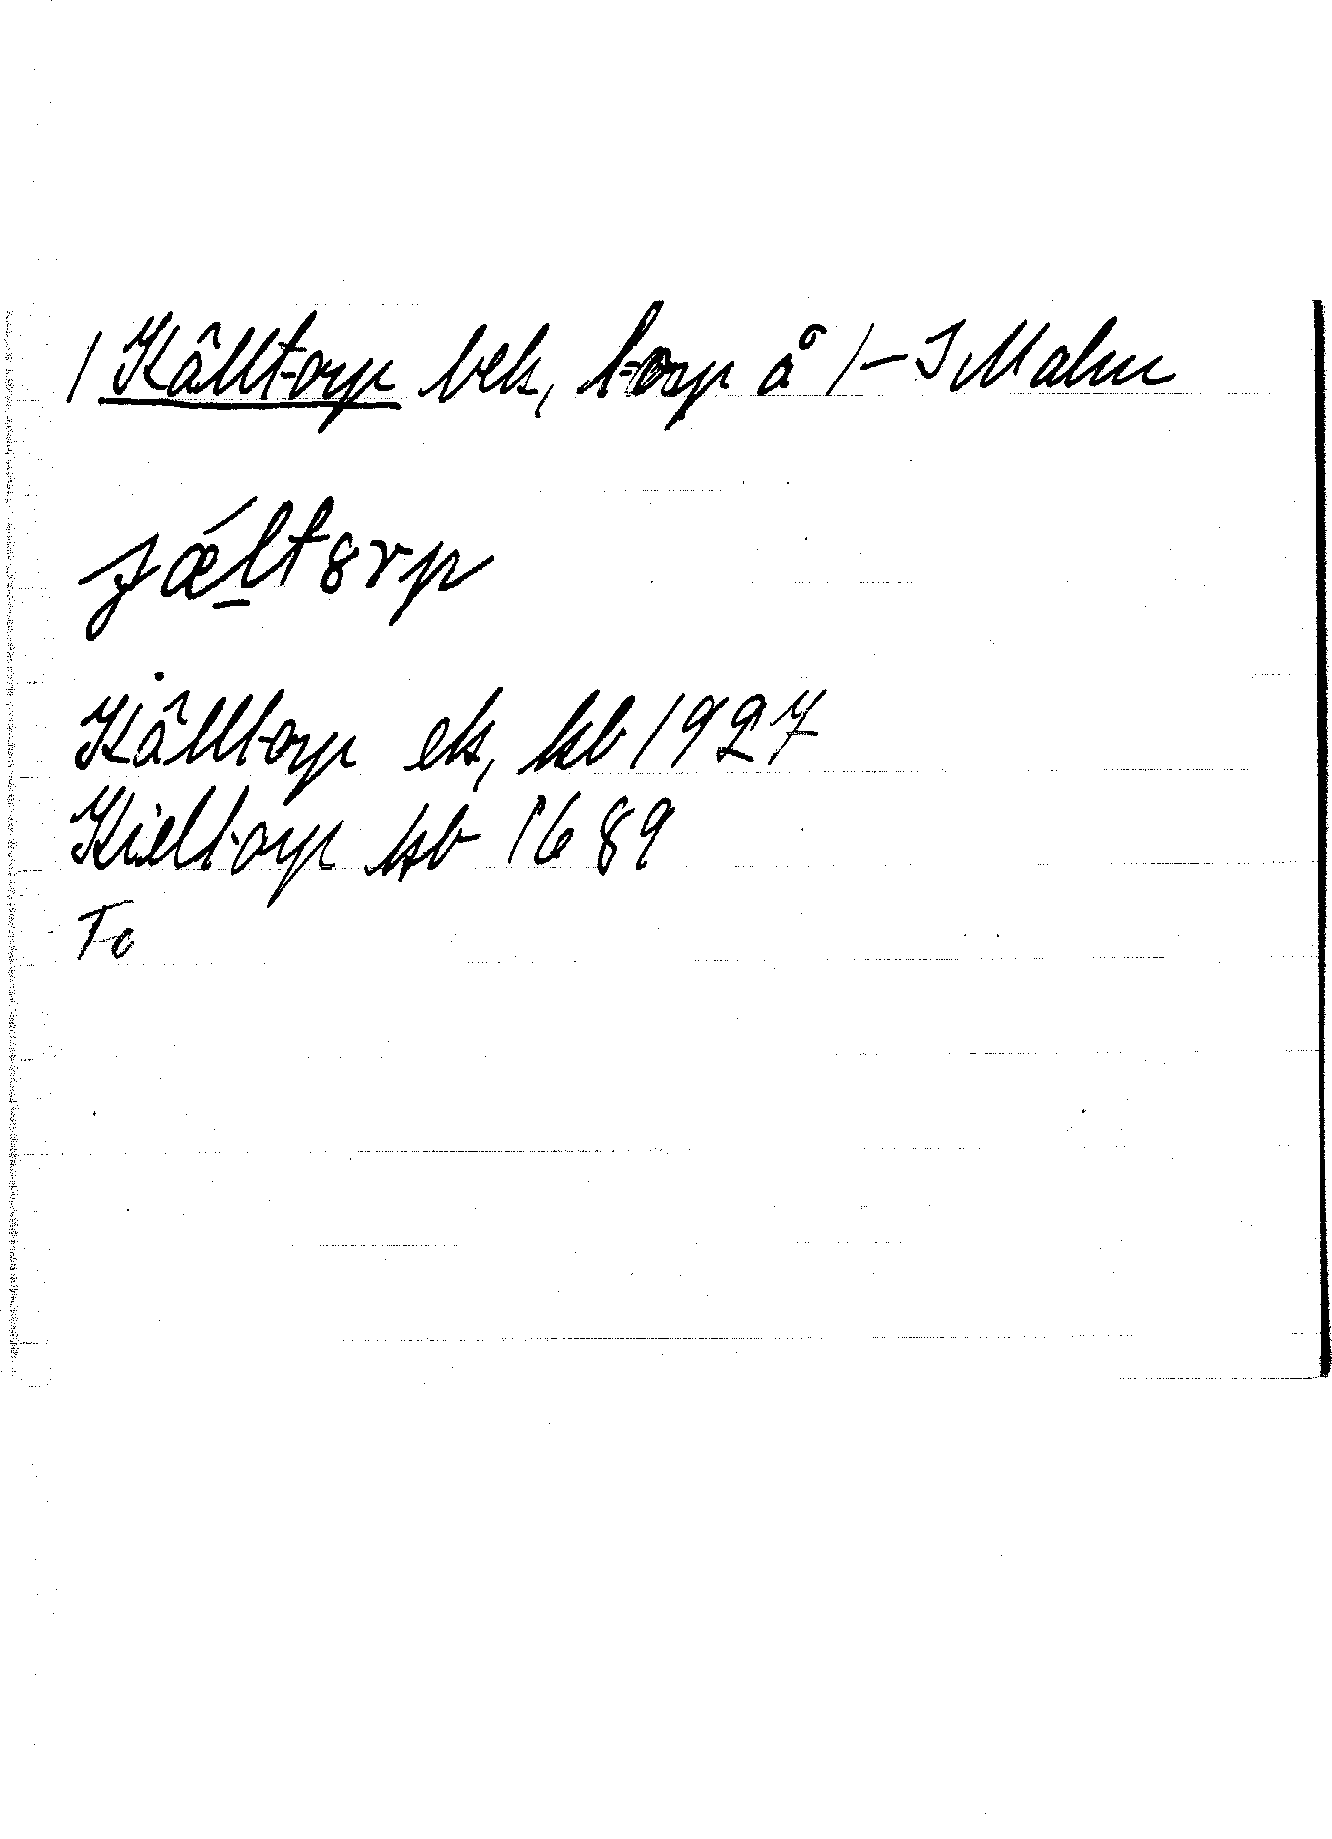 1 Källtorp bek, torp å 1-3 Malm
Källtorp ek, kb 1927
Kieltorp kb 1689
To